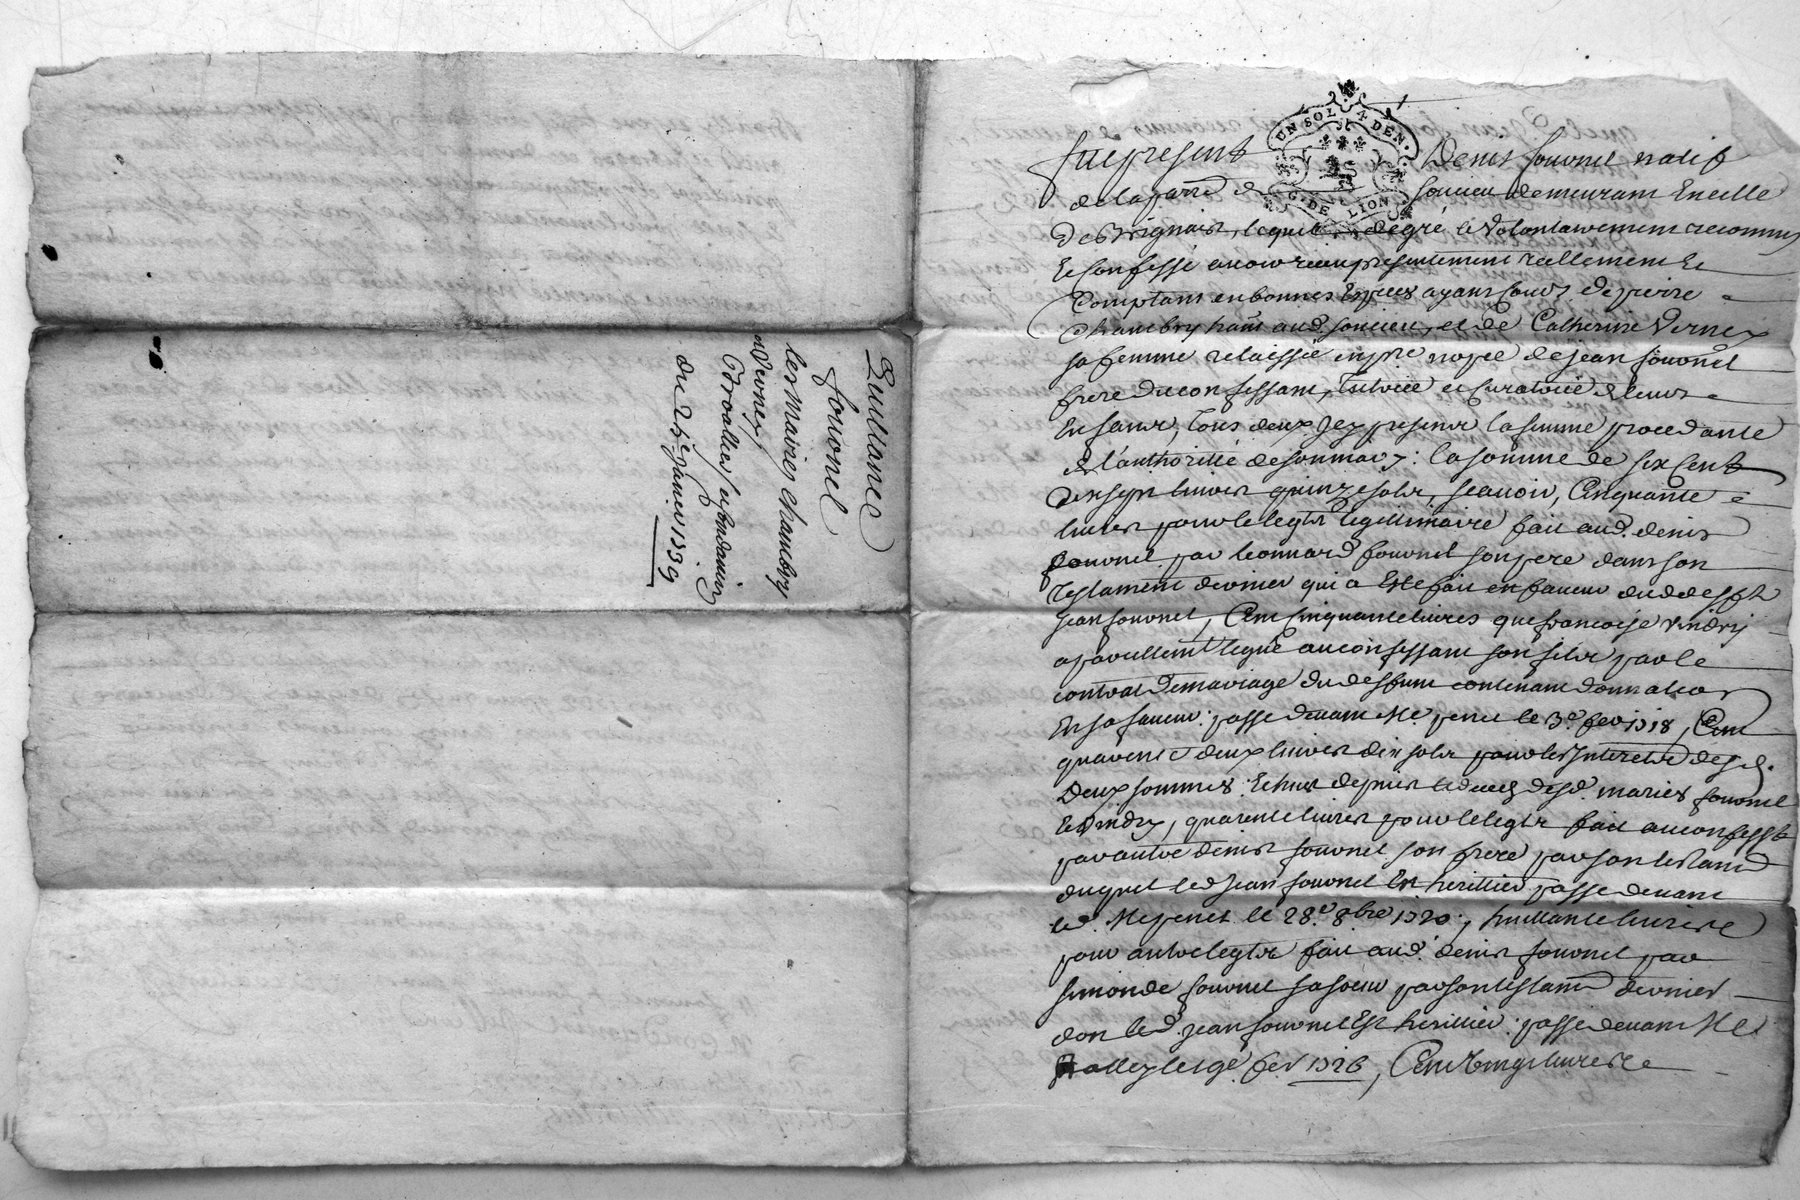 Quittance
fouonel
les mariés chambry
& verney
du 24 janvier 1739
UN SOL 4 DEN.
G. DE LION
fut present Denis fouonel natif
de la parr.e de soucieu demeurant en celle
de Brignais, lequel de gré & volontairement a reconnu
Et confessé avoir receu presentement reellement Et
Comptant en bonnes Especes ayant cours de pierre
Chambry hant aud. soucieu, et de Catherine Verney
sa femme relaissée en pre nopce de jean fouonel
frere du confessant, Tutrice et Curatrice de leurs
Enfants, Tous deux Icy presents la femme procedante
de l'authorité de son mary: la somme de six Cent
dix sept livres quinze sols, scavoir, Cinquante
livres pour le legat legitimaire fait aud. denis
fouonel par leonnard fouonel son pere dans son
Testament dernier qui a Esté fait en faveur dud defft
jean fouonel, Cent cinquante livres que francoise vindry
a pareillem.t legué au confessant son fils par le
contrat de mariage du deffunt contenant donnation
En sa faveur: passé devant Me penet le 3.e fev 1718, Cent
quarente deux livres dix sols pour les Interets desd.
deux sommes: Echus depuis le deces desd. mariés fouonel
& vindry, quarente livres pour le legat fait au confesst
par autre denis fouonel son frere par son testamt
duquel led jean fouonel Est heritier passé devant
led. Me penet le 28.e 8bre 1720, huittante livres
pour autre legat fait aud. denis fouonel par
simonde fouonel sa soeur par son testamt dernier
dont led. jean fouonel Est heritier: passé devant Me
le 9.e fev 1726, Cent vingt livres